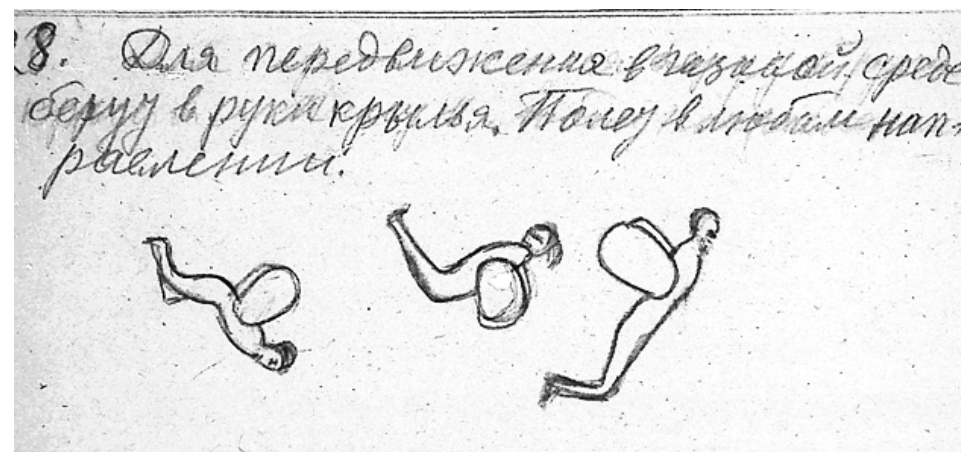 28. Для передвижения в газовой среде
беру в руки крылья. Полет в любом нап-
равлении.